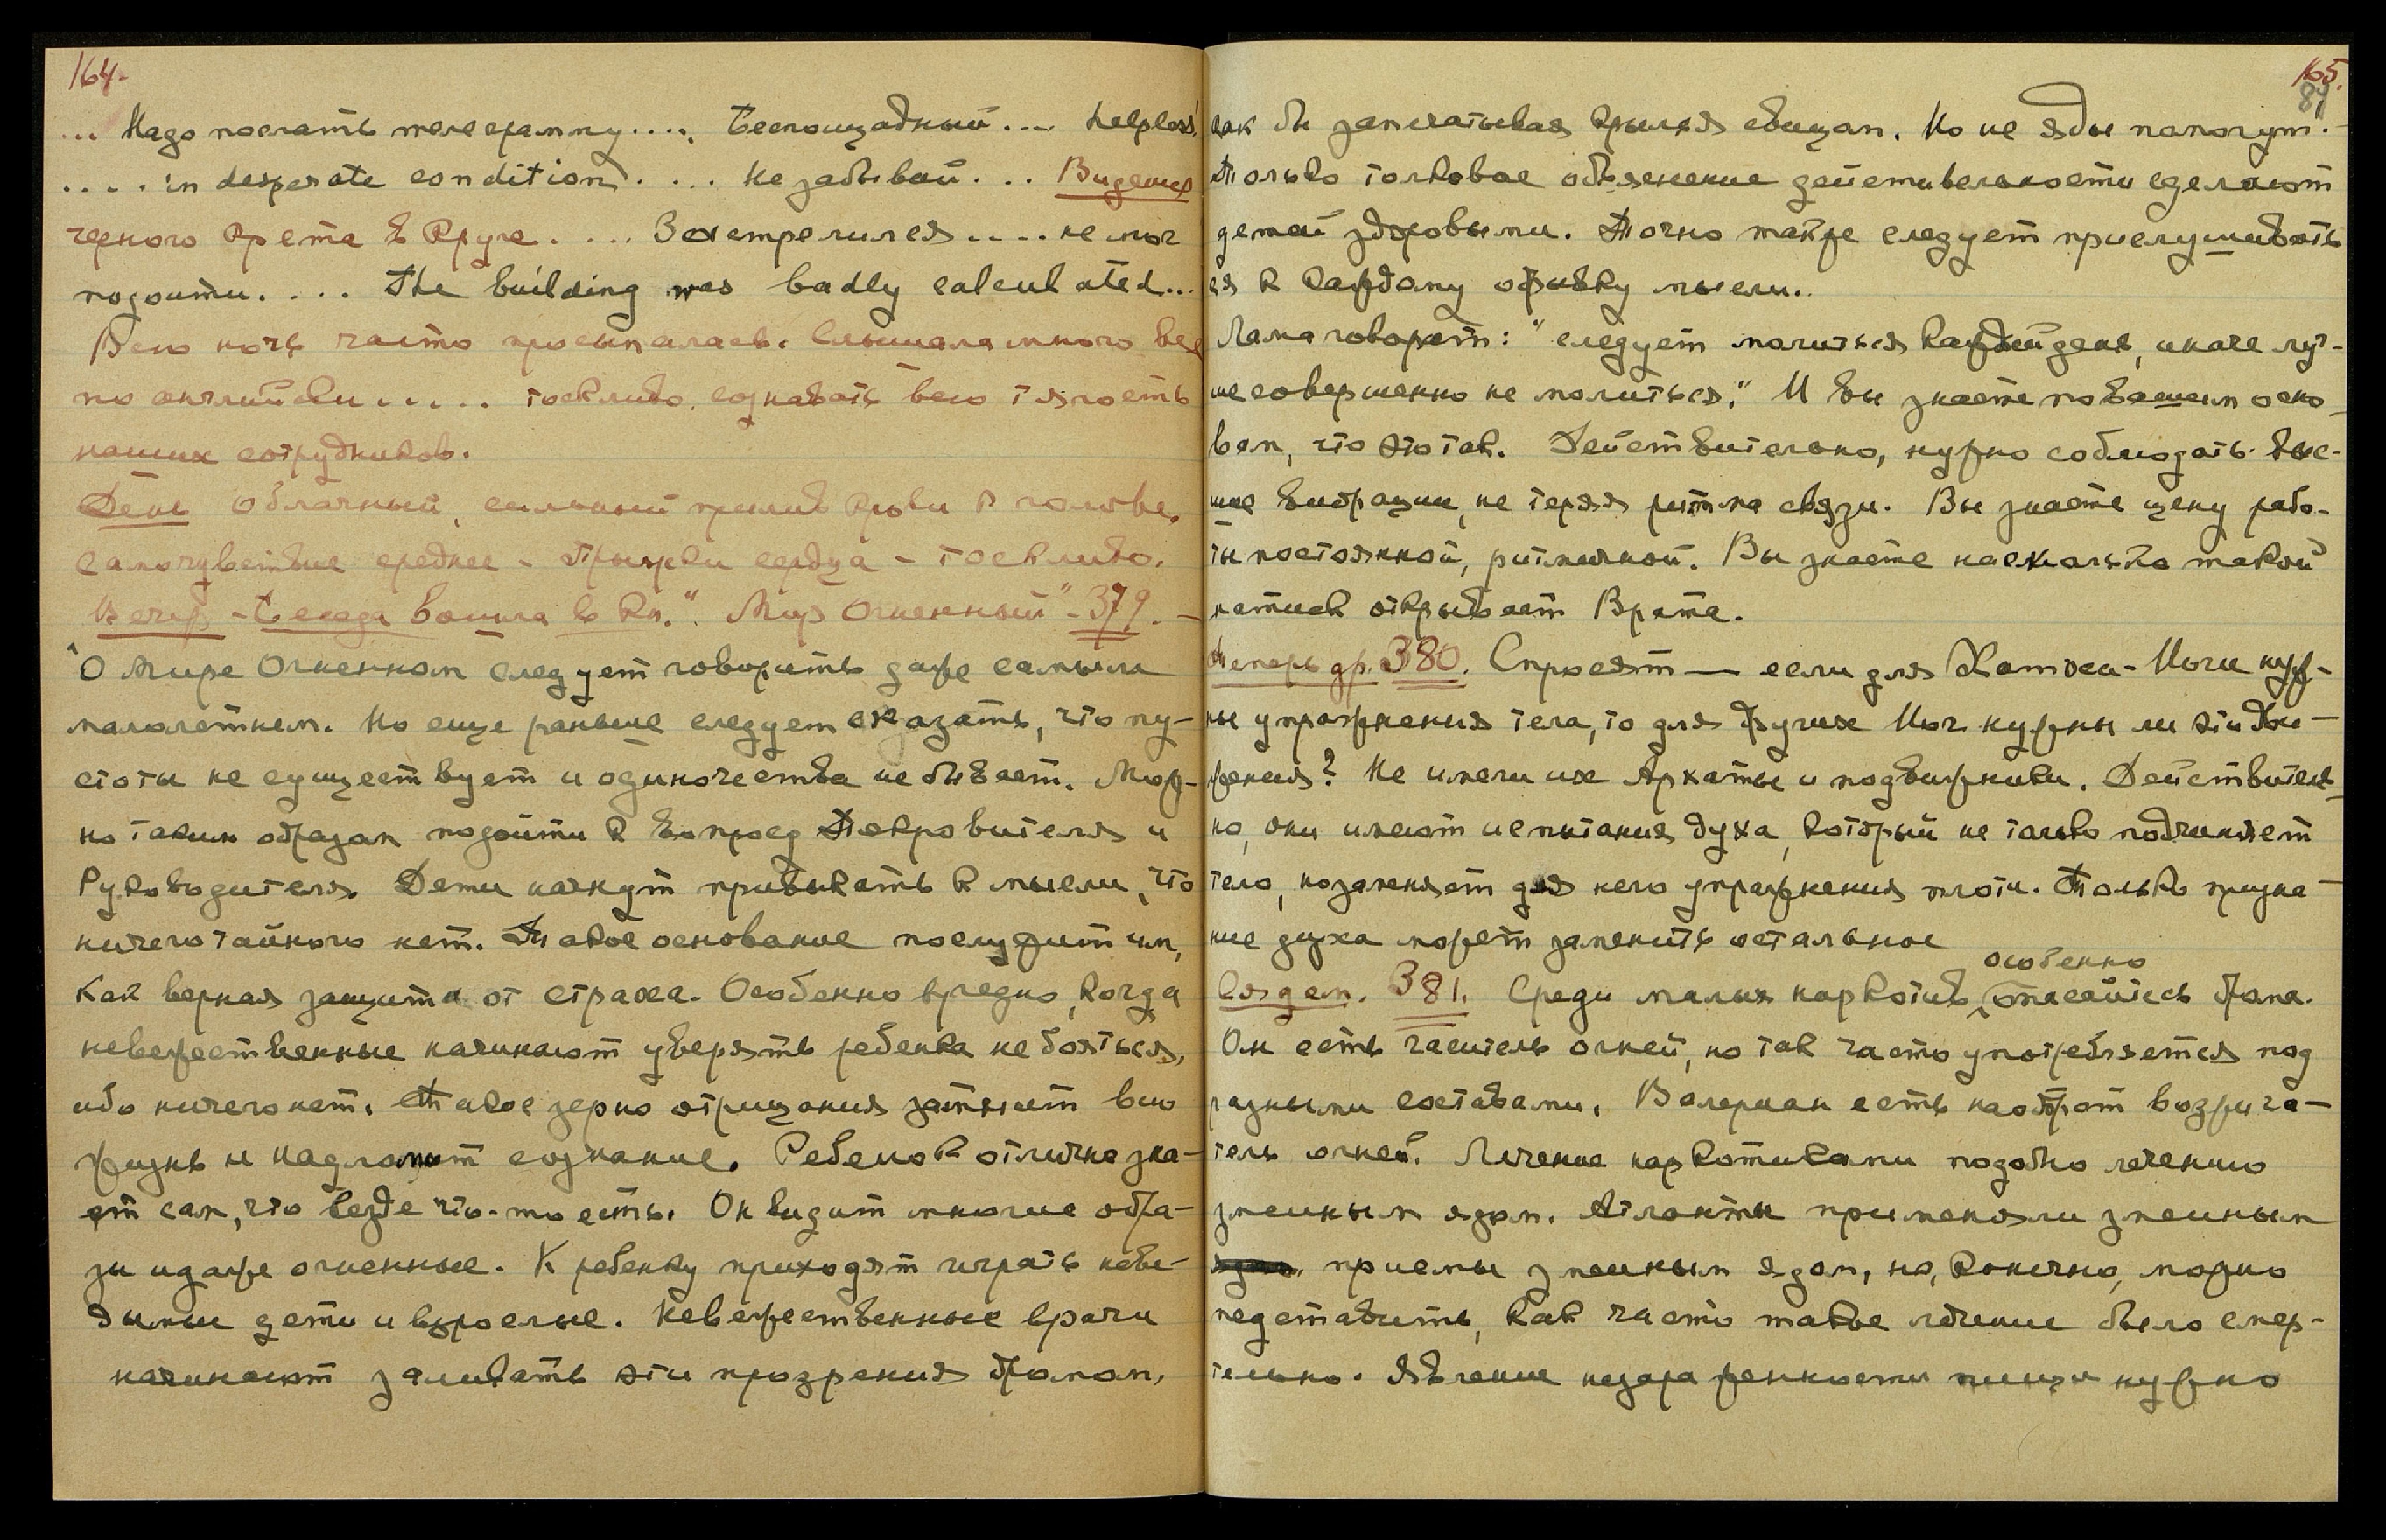 164.
... Надо послать телеграмму.... Беспощадный.... helpless
.... in desperate condition. ... Не забывай... Видение
черного креста в круге. ... Застрелился.... не мог
подойти. ... The building was badly calculated...
Всю ночь часто просыпалась. Слышала много все
по английски..... тоскливо сознавать всю тягость
наших сотрудников.
День облачный, сильный прилив крови к голове.
самочувствие среднее - прыжки сердца - тоскливо.
Вечер - Беседа вошла в кн. "Мир Огненный" - 379. -
"О Мире Огненном следует говорить даже самым
малолетним. Но еще раньше следует сказать, что пу-
стоты не существует и одиночества не бывает. Мож-
но таким образом подойти к вопросу Покровителя и
Руководителя. Дети начнут привыкать к мысли, что
ничего тайного нет. Такое основание послужит им,
как верная защита от страха. Особенно вредно, когда
невежественные начинают уверять ребенка не бояться,
ибо ничего нет. Такое зерно отрицания затемнит всю
жизнь и надломит сознание. Ребенок отлично зна-
ет сам, что везде что-то есть. Он видит многие обра-
зы и даже огненные. К ребенку приходят играть неве-
домые дети и взрослые. Невежественные врачи
начинают заливать эти прозрения бромом,
165.
87
как бы запечатывая крылья свинцом. Но не яды помогут. -
Только толковое объяснение действительности сделают
детей здоровыми. Точно также следует прислушивать
ся к каждому обрывку мысли.
Лама говорит: "следует молиться каждый день, иначе луч-
ше совершенно не молиться." И вы знаете по вашим осно-
вам, что это так. Действительно, нужно соблюдать выс-
шие вибрации, не теряя ритма связи. Вы знаете цену рабо-
ты постоянной, ритмичной. Вы знаете насколько такой
натиск открывает Врата.
Теперь др. 380. Спросят — если для Хатха-Йоги нуж-
ны упражнения тела, то для других Йог нужны ли эти дви-
жения? Не имели их Архаты и подвижники. Действитель-
но, они имеют испытания духа, который не только подчиняет
тело, но заменяет для него упражнения плоти. Только призна-
ние духа может заменить остальное
особенно
Создам. 381. Среди малых наркотив опасайтесь брома.
Он есть гаситель огней, но так часто употребляется под
разными составами. Валериан есть наоборот возжига-
тель огней. Лечение наркотиками подобно лечению
змеиным ядом. Атланты применяли змеиным
приемы змеиным ядом, но, конечно, можно
педставить, как часто такое лечение было смер-
тельно. Явление незараженности пищи нужно